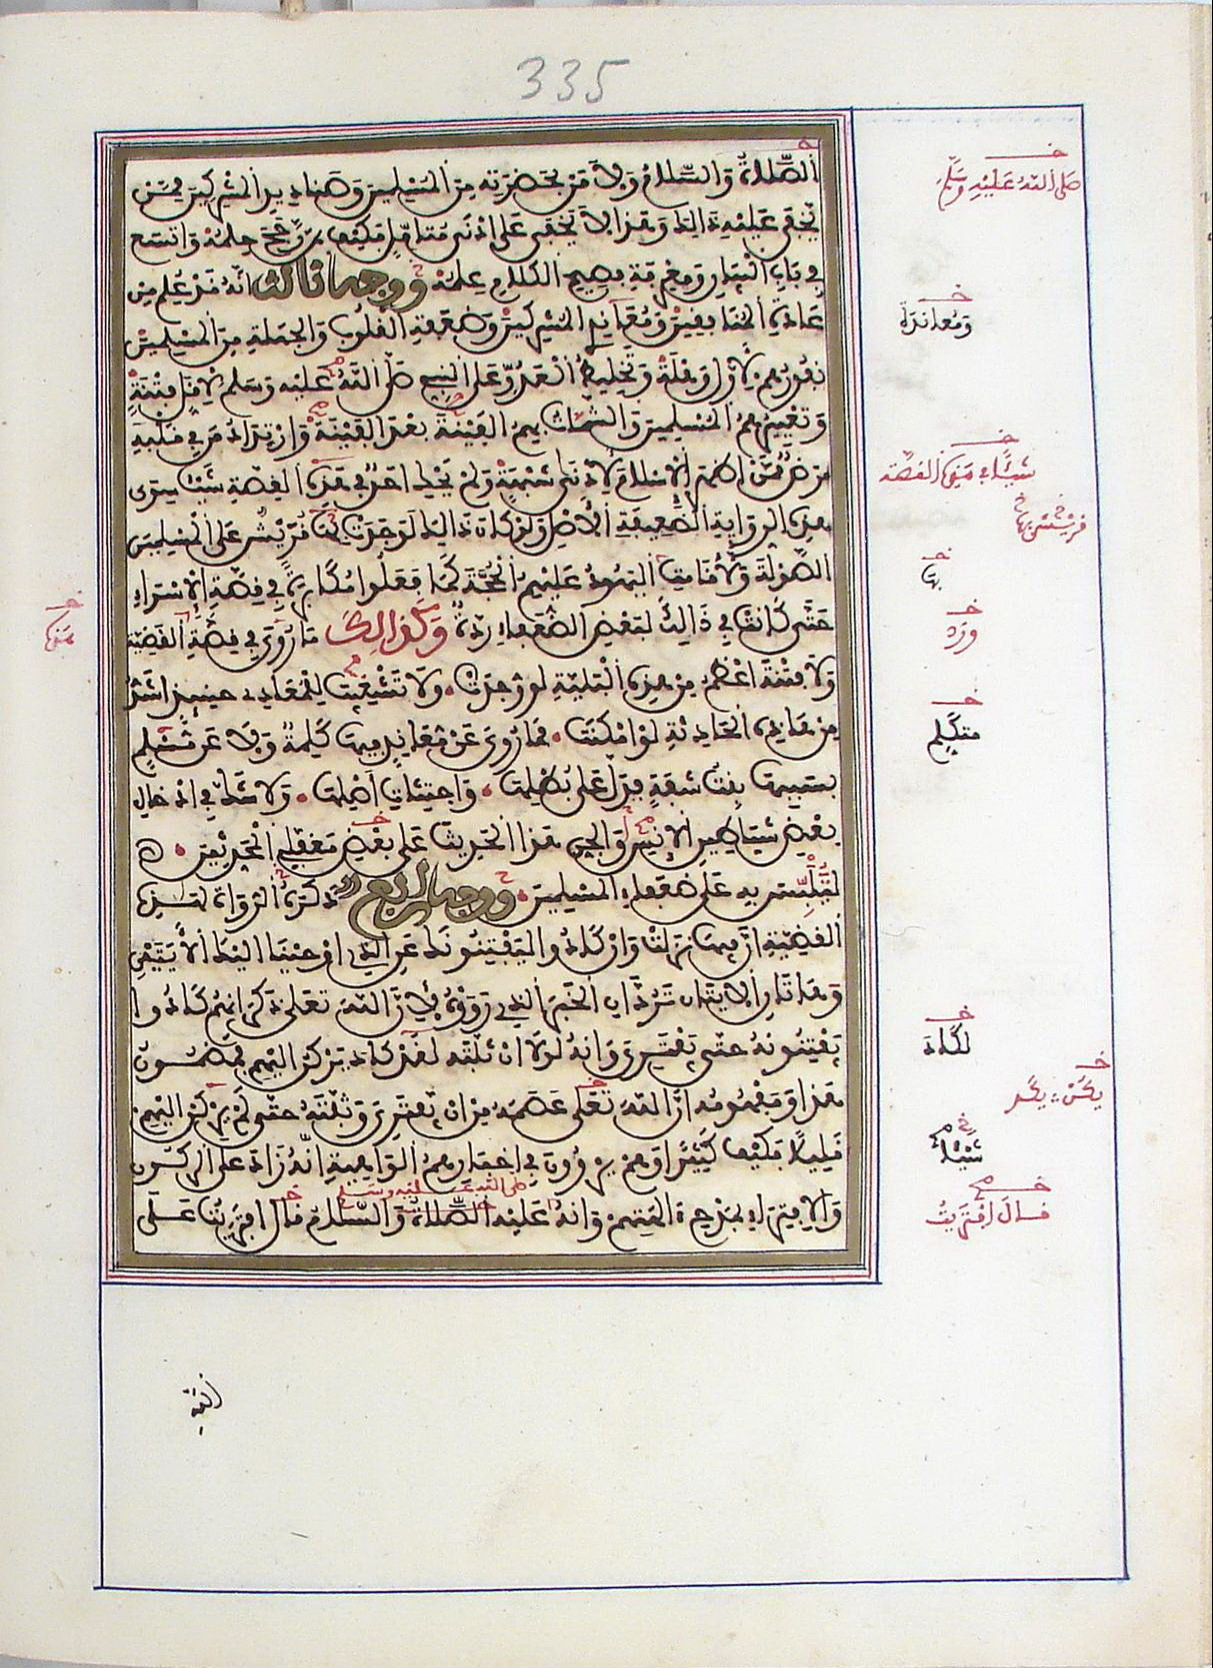 335
الصَّلاةُ وَالسَّلامُ وَلا مَن بحَضرَتِه مِنَ المُسْلِمِينَ وَصَنادِيدِ المُشرِكِينَ مِمَّن
يَخفَى عَلَيْهِ ذَالِكَ وَهَذا لا يَخفَى عَلَى أدْنَى مُتَأمِّلٍ فَكَيْفَ بِمَن رَّجَحَ حِلمُهُ وَاتَّسَعَ
فِي بَابِ الْبَيَانِ وَمَعْرِفَةِ فَصِيحِ الكَلامِ عِلْمُهُ وَوَجهٌ ثَالِثٌ أنَّهُ قَدْ عُلِمَ مِن
عَادَةِ المُنَافِقِينَ وَمُعَانِدِي المُشرِكِينَ وَضَعَفَةِ القُلُوبِ وَالجَهَلَةِ مِنَ المُسْلِمِينَ
نُفُورُهُم لِأوَّلِ وَهْلَةٍ وَتَخْلِيطُ العَدُوِّ عَلَى النَّبِيِّ صَلَّى اللَّهُ عَلَيْهِ وَسَلَّمَ لأقَلِّ فِتْنَةٍ
وَتَعْيِيرُهُمُ المُسْلِمِينَ وَالشَّمَاتُ بِهِمُ الفَيْنَةَ بَعْدَ الفَيْنَةِ وَارْتِدَادُ مَن فِي قَلْبِهِ
مَرَضٌ مِمَّن أظْهَرَ الإسْلامَ لأدْنَى شُبْهَةٍ وَلَمْ يَحْكِ أحَدٌ فِي هَذِهِ القِصَّةِ شَيْئًا سِوَى
هَذِهِ الرِّوَايَةِ الضَّعِيفَةِ الأصْلِ وَلَوْ كَانَ ذَالِكَ لَوَجَدَتْ بِهَا قُرَيْشٌ عَلَى المُسْلِمِينَ
الصَّوْلَةَ وَلأقَامَتْ بِهَا اليَهُودُ عَلَيْهِمُ الحُجَّةَ كَمَا فَعَلُوا مُكَابَرَةً فِي قِصَّةِ الإسْرَاءِ
حَتَّى كَانَتْ فِي ذَالِكَ لِبَعْضِ الضُّعَفَاءِ رِدَّةٌ وَكَذَالِكَ مَا رُوِيَ فِي قِصَّةِ القَضِيَّةِ
وَلا فِتْنَةَ أعْظَمُ مِن هَذِهِ البَلِيَّةِ لَوْ وُجِدَتْ وَلا تَشْغِيبَ لِلْمُعَادِي حِينَئِذٍ أشَدُّ
مِن هَذِهِ الحَادِثَةِ لَوْ أمْكَنَتْ فَمَا رُوِيَ عَنْ مُعَانِدٍ فِيهَا كَلِمَةٌ وَلا عَن مُّسْلِمٍ
بِسَبَبِهَا بِنْتُ شَفَةٍ فَدَلَّ عَلَى بُطْلِهَا وَاجْتِثَاثِ أصْلِهَا وَلا شَكَّ فِي إدْخَالِ
بَعْضِ شَيَاطِينِ الإنْسِ وَالجِنِّ هَذَا الحَدِيثَ عَلَى بَعْضِ مُغَفَّلِي المُحَدِّثِينَ
لِيُلَبِّسَ بِهِ عَلَى ضُعَفَاءِ المُسْلِمِينَ وَوَجهٌ رَابِعٌ ذَكَرَ الرُّوَاةُ لِهَذِهِ
القَضِيَّةِ أنَّ فِيهَا نَزَلَتْ وَإنْ كَادُوا لَيَفْتِنُونَكَ عَنِ الَّذِي أوْحَيْنَا إلَيْكَ الآيَتَيْنِ
وَهَاتَانِ الآيَتَانِ تَرُدَّانِ الخَبَرَ الَّذِي رَوَوْهُ لأنَّ اللَّهَ تَعَلَى ذَكَرَ أنَّهُم كَادُوا
يَفْتِنُونَهُ حَتَّى يَفْتَرِيَ وَأنَّهُ لَوْلا أنْ ثَبَّتَهُ لَقَدْ كَادَ يَرْكَنُ إلَيْهِم فَمَضْمُونُ
هَذَا وَمَفْهُومُهُ أنَّ اللَّهَ تَعَلَى عَصَمَهُ مِنْ أنْ يَّفْتَرِيَ وَثَبَّتَهُ حَتَّى لَمْ يَرْكَنْ إلَيْهِمْ
قَلِيلًا فَكَيْفَ كَثِيرًا وَهُمْ يَرْوُونَ فِي أخْبَارِهِمُ الوَاهِيَةِ أنَّهُ زَادَ عَلَى الرُّكُونِ
صلى الله عليه وسلم
وَالافْتِرَاءِ بِمَدْحِ ءَالِهَتِهِمْ وَأنَّهُ عَلَيْهِ الصَّلاةُ وَالسَّلامُ قَالَ افْتَرَيْتُ عَلَى
خ صَلَّى اللَّهُ عَلَيْهِ وَسَلَّمَ
خ وَمُعَانَدَةُ
خ شَيْئًا فِي هَذِهِ القِصَّةِ
خ قُرَيْشٌ بِهَا
خ بِهَا
خ وَرَدَ
خ هَذِهِ
خ مُتَكَلِّمٍ
خ لَكَادَ
خ يَكُنْ
شَيْئًا
خ قَالَ افْتَرَيْتُ
اللَّهِ